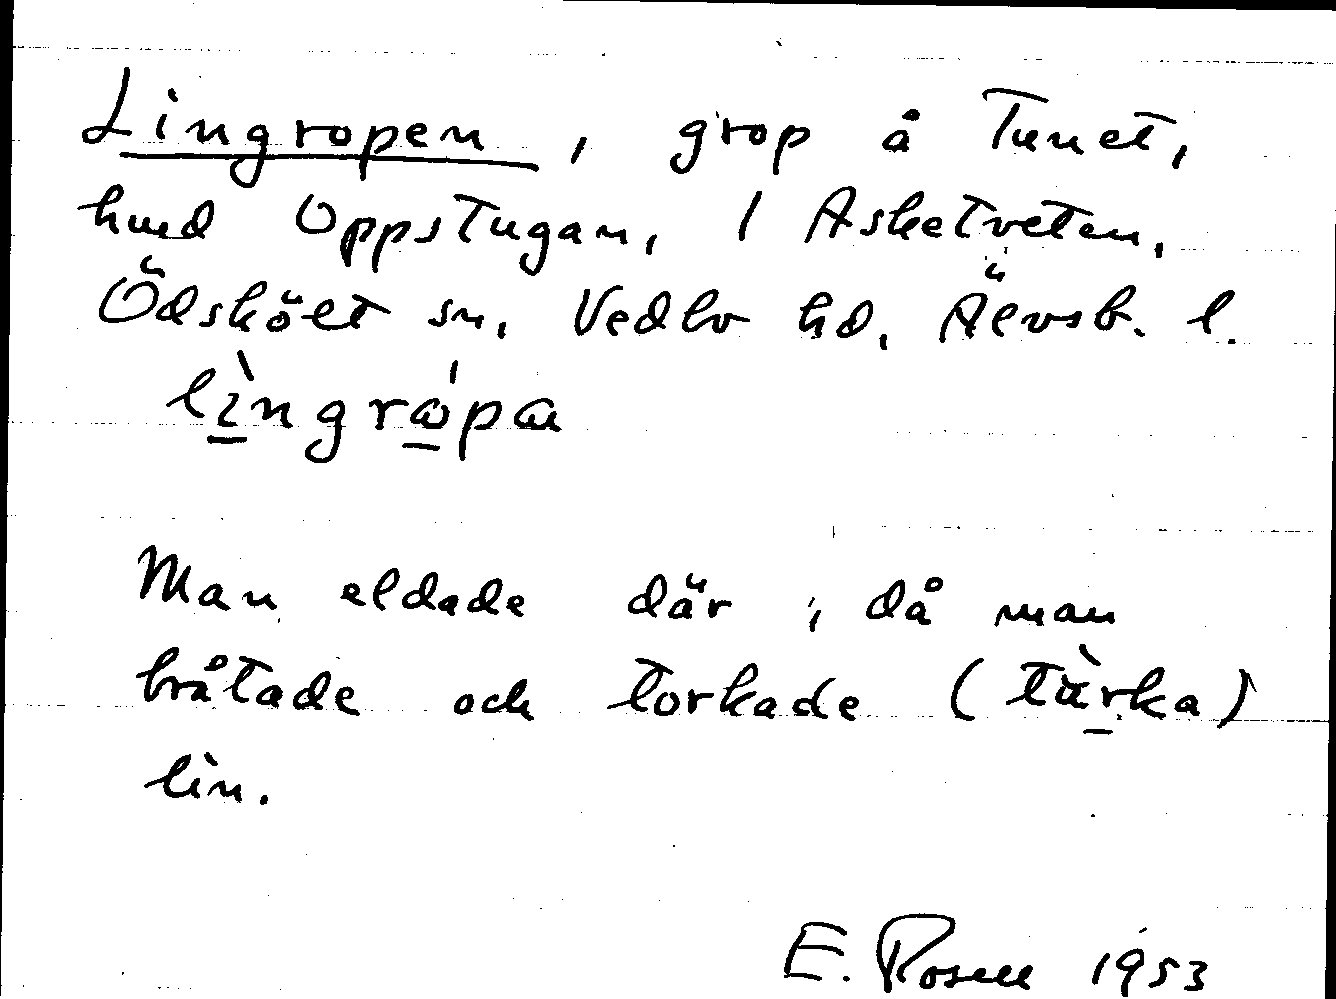 Lingropen, grop å Tunet,
hmd Oppstugan, 1 Asketveten,
Ödskölt sn, Vedbo hd, Älvsb. l.
lìngrɷ́pa
Man eldade där, då man
bråtade och torkade (tùrka)
lin.
E. Rosell 1953